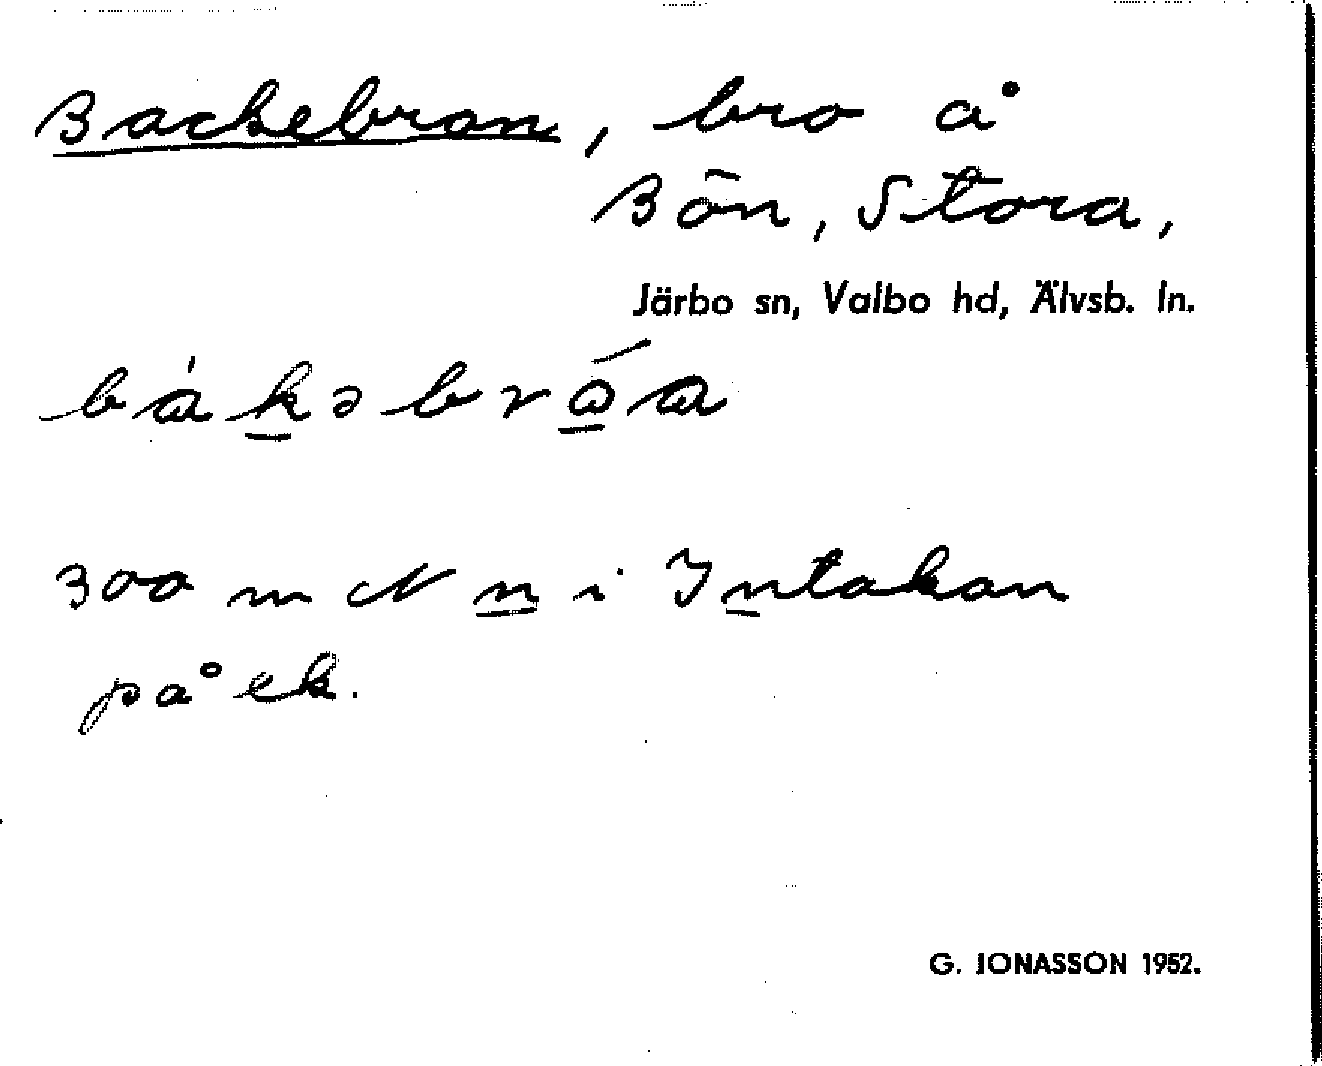 Backebron, bro å
Bön, Stora,
Järbo sn, Valbo hd, Älvsb. ln.
bákəbrǿa
300 m N n i Intakan
på ek.
G. JONASSON 1952.